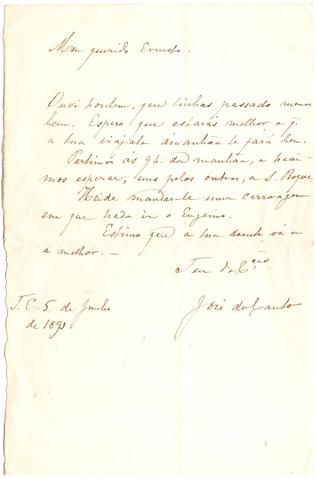 Meu querido Ernesto.
Ouvi hontem, que tinhas passado menos
bem. Espero que estarás melhor e q.
a tua viajata ámanhãa te fará bem.
Partimos ás 9h. da manhãa, e have-
mos esperar, uns pelos outros, a S. Roque
Heide mandar-te uma carroagem
em que hade ir o Eugenio.
Estimo que a tua doente vá a
a melhor. —
Teu do C.ção
José do Canto
J. C. 5 de Junho
de 1893